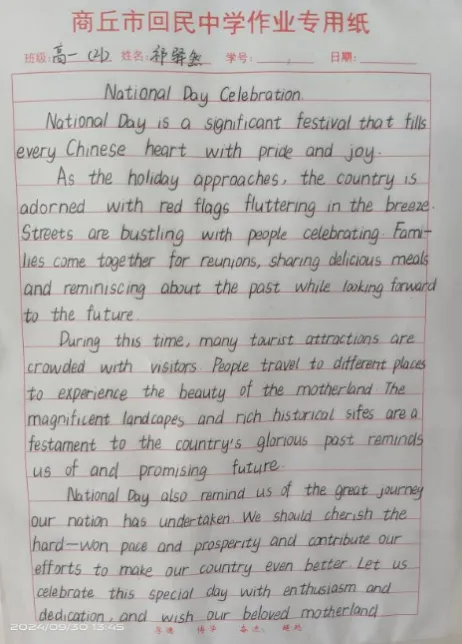 商丘市回民中学作业专用纸
班级: 高一(21) 姓名: 祁驿然 学号: 日期:
National Day Celebration.
National Day is a significant festival that fills
every Chinese heart with pride and joy.
As the holiday approaches, the country is
adorned with red flags fluttering in the breeze.
Streets are bustling with people celebrating. Fami-
lies come together for reunions, sharing delicious meals
and reminiscing about the past while looking forward
to the future.
During this time, many tourist attractions are
crowded with visitors. People travel to different places
to experience the beauty of the motherland The
magnificent landcapes and rich historical sifes are a
festament to the country's glorious past reminds
us of and promising future.
National Day also remind us of the great journey
our nation has undertaken. We should cherish the
hard-won pace and prosperity and contribute our
efforts to make our country even better. Let us
celebrate this special day with enthusiasm and
dedication, and wish our beloved motherland
2024/09/30 13:45